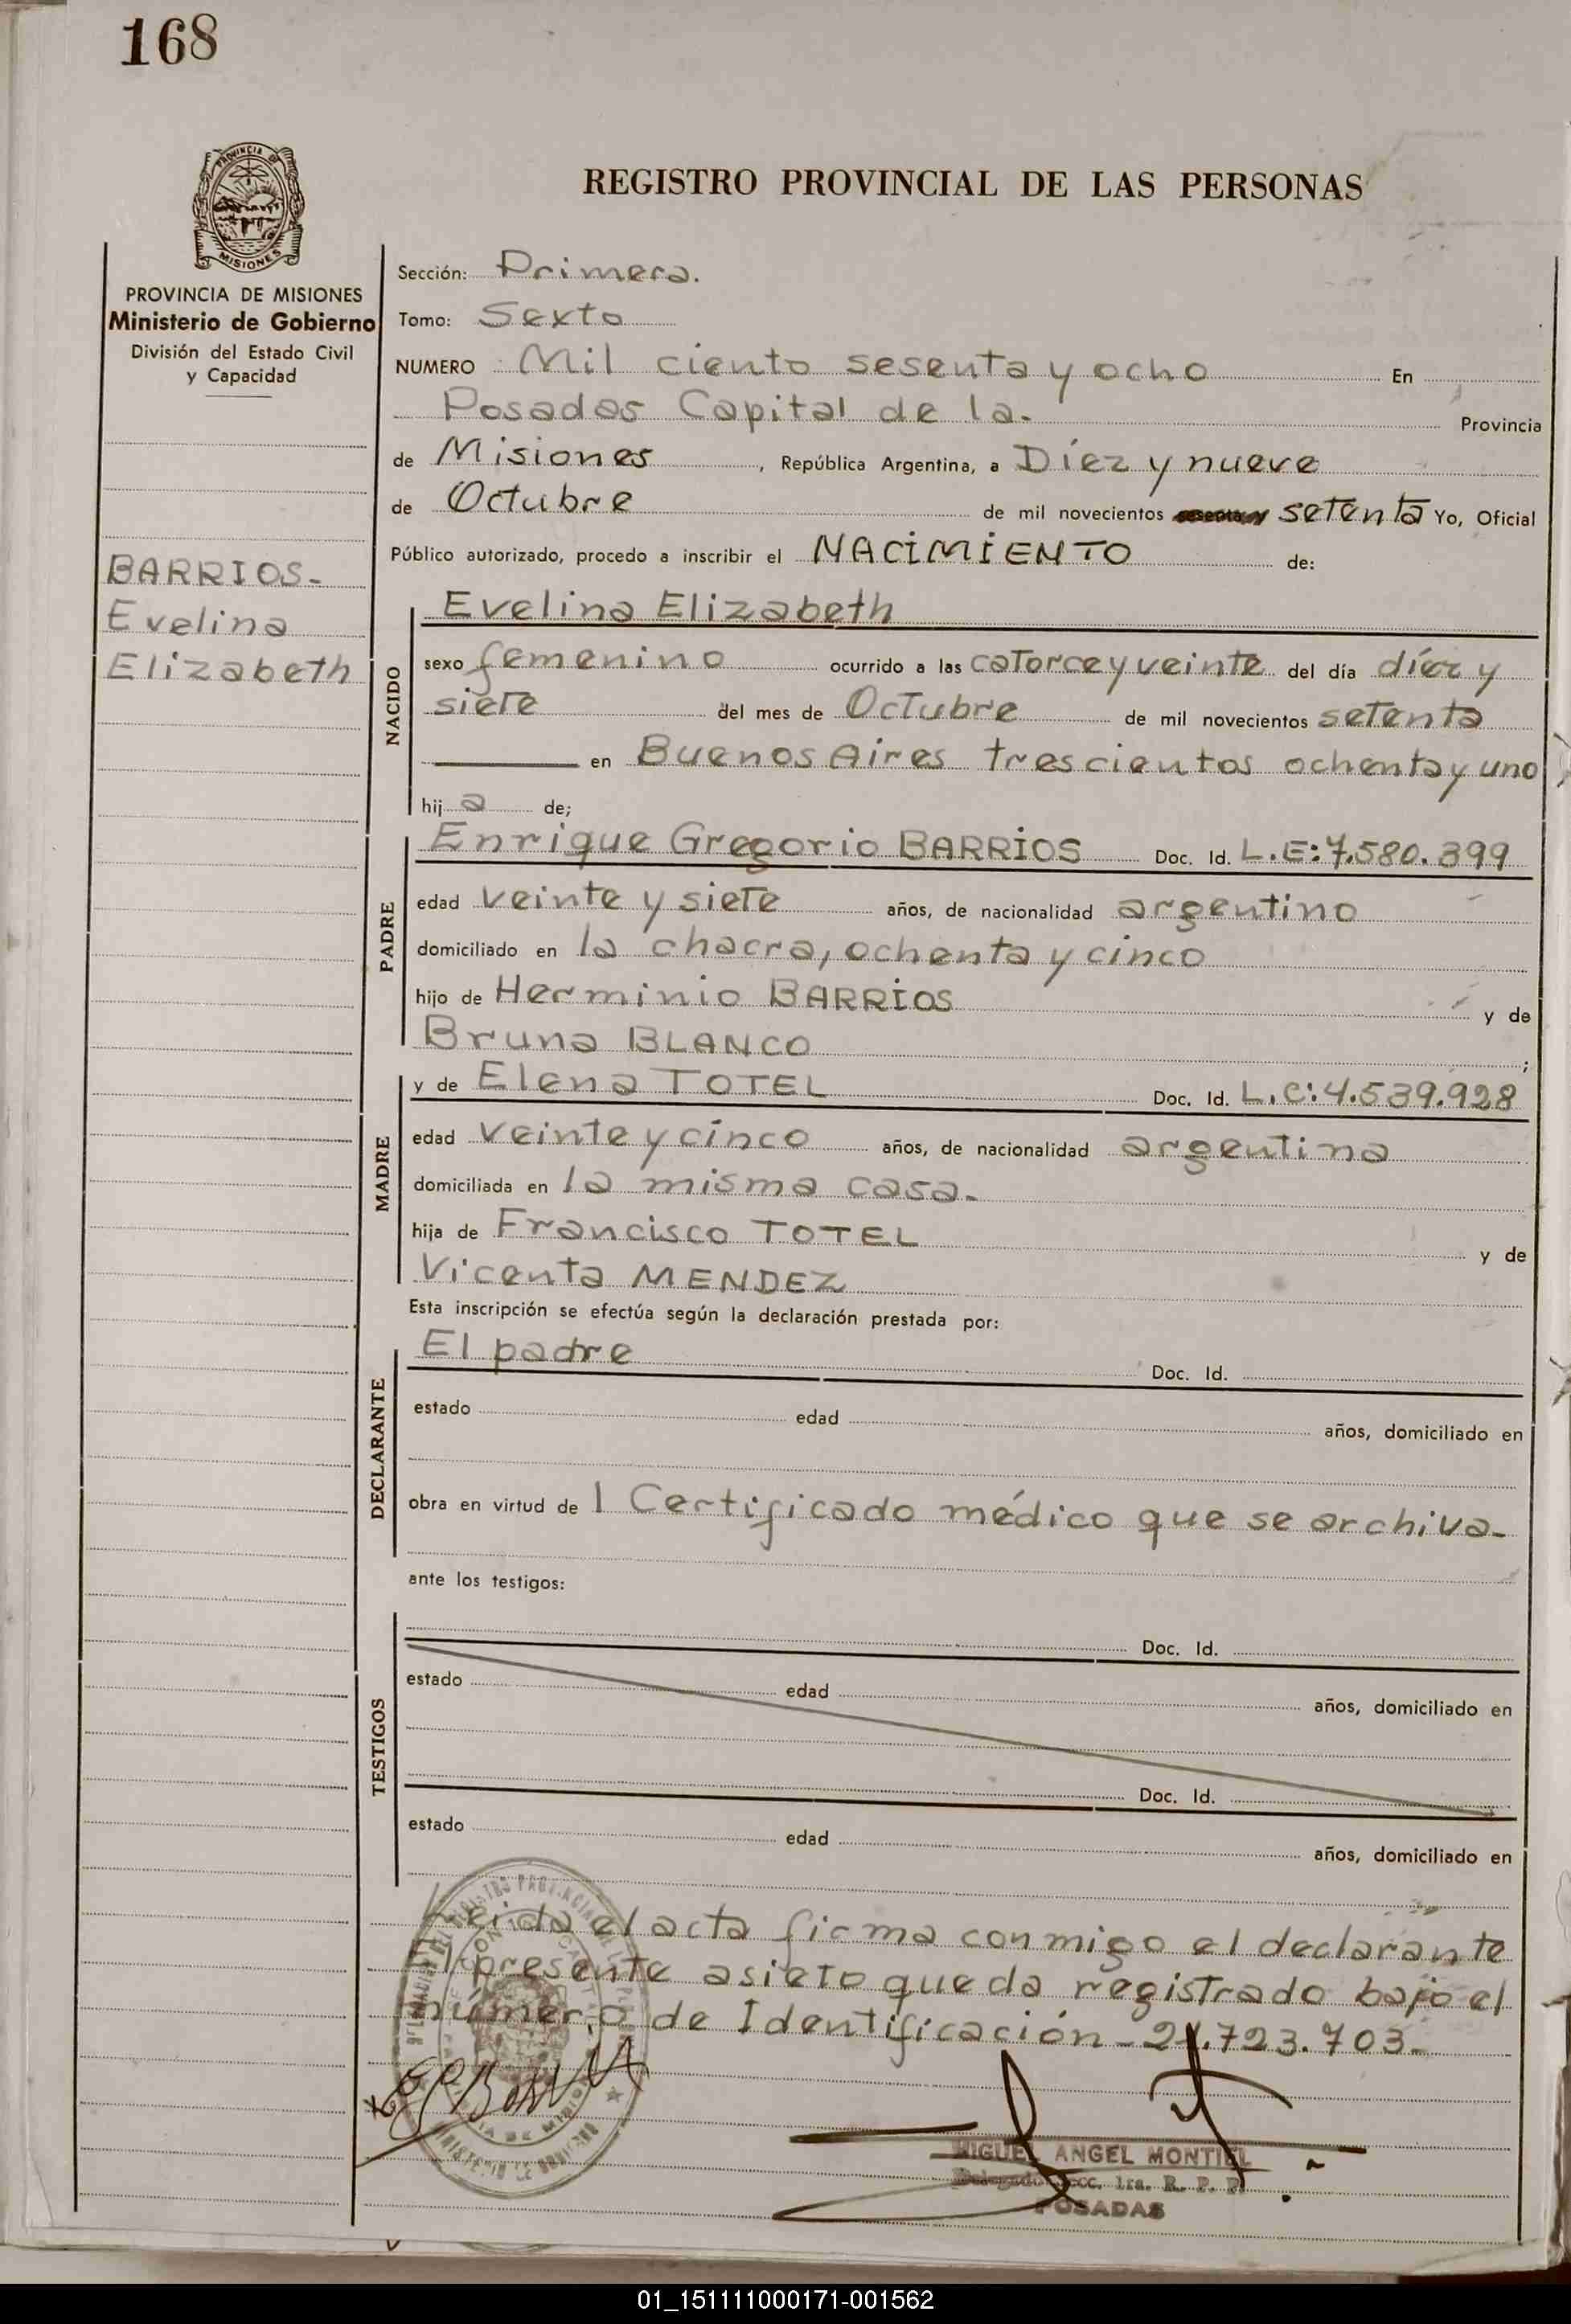 168
PROVINCIA DE
MISIONES
REGISTRO PROVINCIAL DE LAS PERSONAS
PROVINCIA DE MISIONES
Ministerio de Gobierno
División del Estado Civil
y Capacidad
BARRIOS-
Evelina
Elizabeth
Sección: Primera.
Tomo: Sexto
NUMERO Mil ciento sesenta y ocho En
Posadas Capital de la. Provincia
de Misiones, República Argentina, a Díez y nueve
de Octubre de mil novecientos setenta Yo, Oficial
Público autorizado, procedo a inscribir el NACIMIENTO de:
NACIDO
Evelina Elizabeth
sexo femenino ocurrido a las catorce y veinte del día díez y
siete del mes de Octubre de mil novecientos setenta
en Buenos Aires trescientos ochenta y uno
hij a de;
PADRE
Enrique Gregorio BARRIOS Doc. Id. L.E:7.580.399
edad veinte y siete años, de nacionalidad argentino
domiciliado en la chacra, ochenta y cinco
hijo de Herminio BARRIOS y de
Bruna BLANCO ;
MADRE
y de Elena TOTEL Doc. Id. L.C:4.539.928
edad veinte y cinco años, de nacionalidad argentina
domiciliada en la misma casa.
hija de Francisco TOTEL y de
Vicenta MENDEZ
Esta inscripción se efectúa según la declaración prestada por:
DECLARANTE
El padre Doc. Id.
estado edad años, domiciliado en
obra en virtud de l Certificado médico que se archiva-
ante los testigos:
TESTIGOS
Doc. Id.
estado edad años, domiciliado en
Doc. Id.
estado edad años, domiciliado en
Leida el acta firma conmigo el declarante
El presente asieto queda registrado bajo el
número de Identificación-21.723.703-
MIGUEL ANGEL MONTIEL
Delegado Secc. 1ra. R. P. P.
POSADAS
01_151111000171-001562